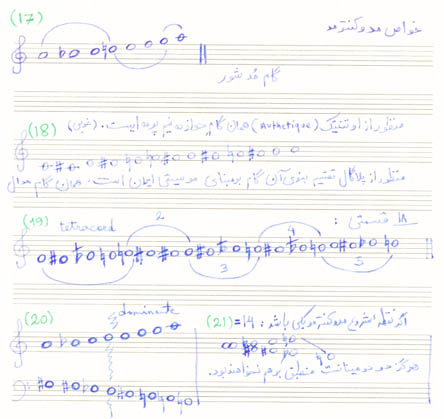 (17) خواص مد و کنترمد
گام مُد شور
(18) منظور از اوتنتیک (Authetique) همان گام دوازده نیم پرده ایست. (غربی)
منظور از پلاگال تقسیم بندی آن گام برمبنای موسیقی ایران است. همان گام
(19) tetracord 2 4 18 قسمتی :
1 3 5
(20) dominante (21)=14 : اگر نقطه شروع مد و کنترمد یکی باشد
هرگز دو دمینانت منطبق برهم نخواهند بود.